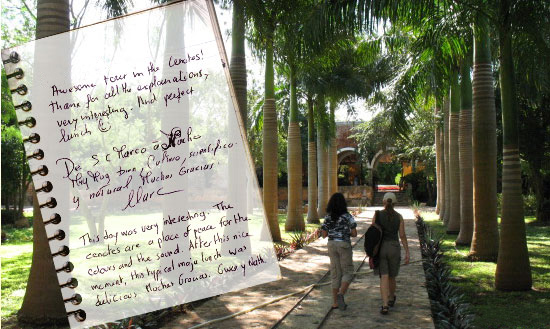 Awesome tour in the Cenotes!
thanx for all the explanations,
very interesting. And perfect
lunch ☺
De S C Marco a Nacho
Muy buen tour, Cultivo, scientifico
y natural. Muchas Gracias
Marc
This day was very interesting. The
cenotes are a place of peace for the
colours and the sound. After this nice
moment, this typical maja lunch was
delicious. Muchas Gracias.